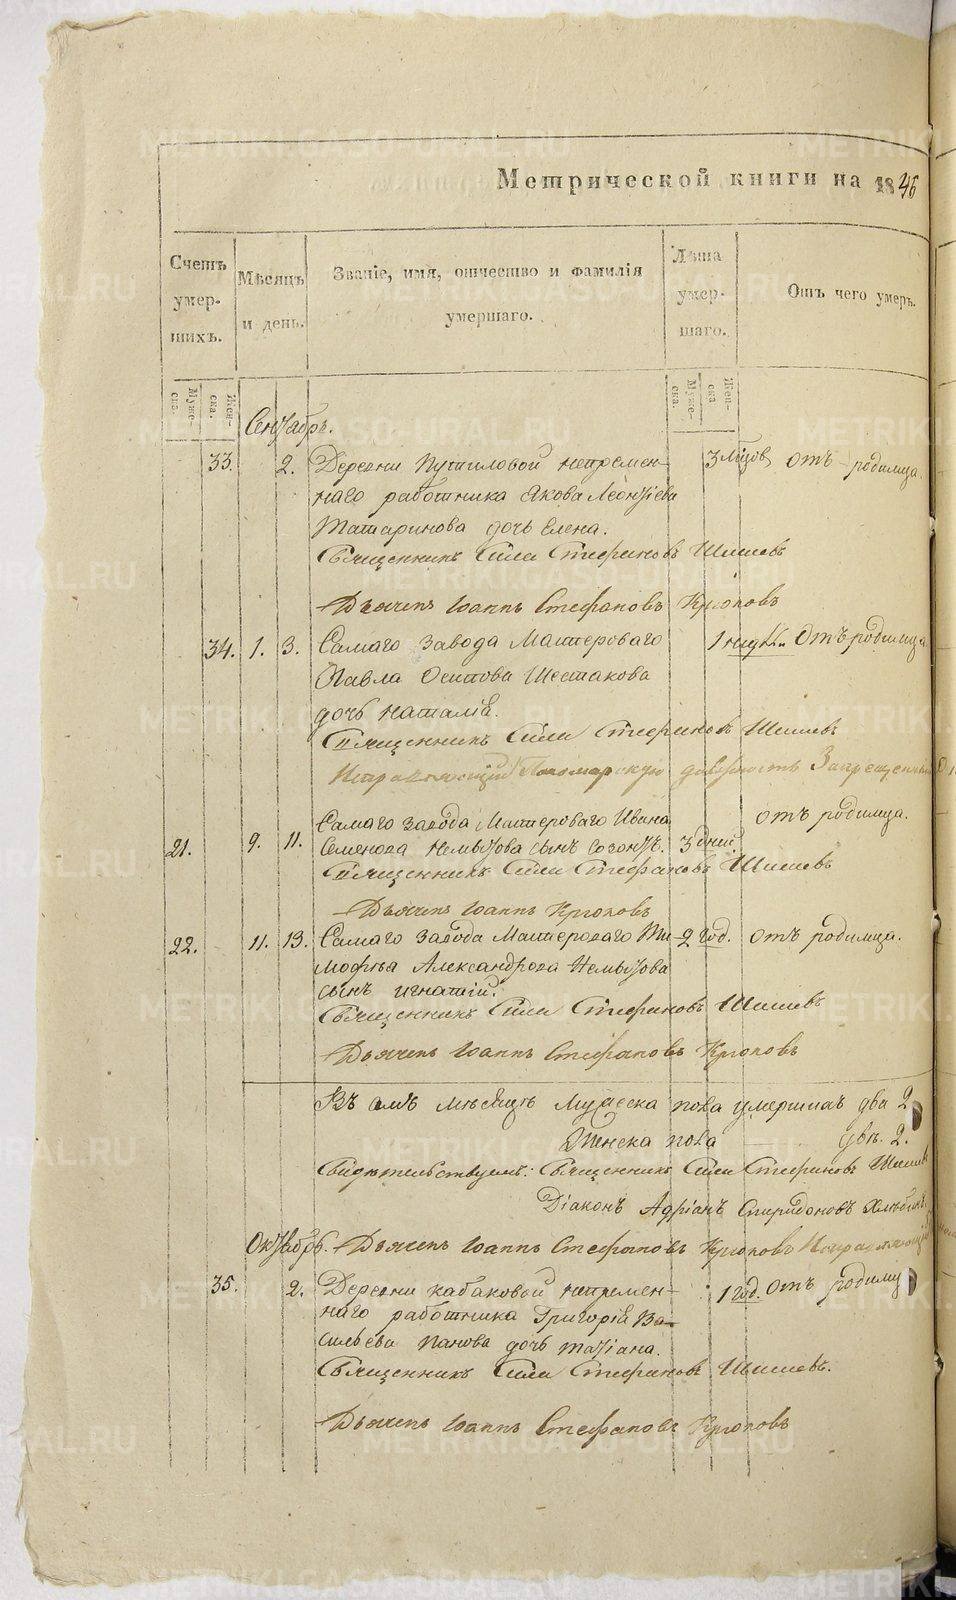 Метрической книги на 1846
Счетъ умер- шихъ.
Мѣсяцъ и день.
Званіе, имя, отчество и фамилія умершаго.
Лѣта умер- шаго.
Отъ чего умеръ.
Муже- ска.
Жен- ска.
Муже- ска.
Жен- ска.
Сентября.
33. 2. Деревни Путиловой непремен- 3 отъ родимца.
наго работника Якова Леонтіева
Татаринова дочь Елена.
Священникъ Сила Стефановъ Шишевъ
Дьячекъ Іоаннъ Стефановъ Крюковъ
34. 1. 3. Самаго завода Мастероваго 1 отъ родимца
Павла Осипова Шестакова
дочь Наталія.
Священникъ Сила Стефановъ Шишевъ
Исправляющій Пономарскую должность Запрещенный
Самаго завода Мастероваго Ивана отъ родимца.
21. 9. 11. Семенова сынъ Созонтъ. 3 дней
Священникъ Сила Стефановъ Шишевъ
Дьячекъ Іоаннъ Крюковъ
22. 11. 13. Самаго завода Мастероваго Ти- 2 год. отъ родимца.
мофѣа Александрова
сынъ Игнатій.
Священникъ Сила Стефановъ Шишевъ
Дьячекъ Іоаннъ Стефановъ Крюковъ
Въ семъ мѣсяцѣ мужеска пола умершихъ два 2
Женска пола — двѣ. 2.
Свидѣтельствуемъ: Священникъ Сила Стефановъ Шишевъ
Діаконъ Адріанъ Спиридоновъ
Октября. Дьячекъ Іоаннъ Стефановъ Крюковъ Исправляющій
35. 2. Деревни Кабаковой непремен- 1 год. отъ родимц
наго работника Григорія Ва-
сильева Панова дочь Татіана.
Священникъ Сила Стефановъ Шишевъ.
Дьячекъ Іоаннъ Стефановъ Крюковъ